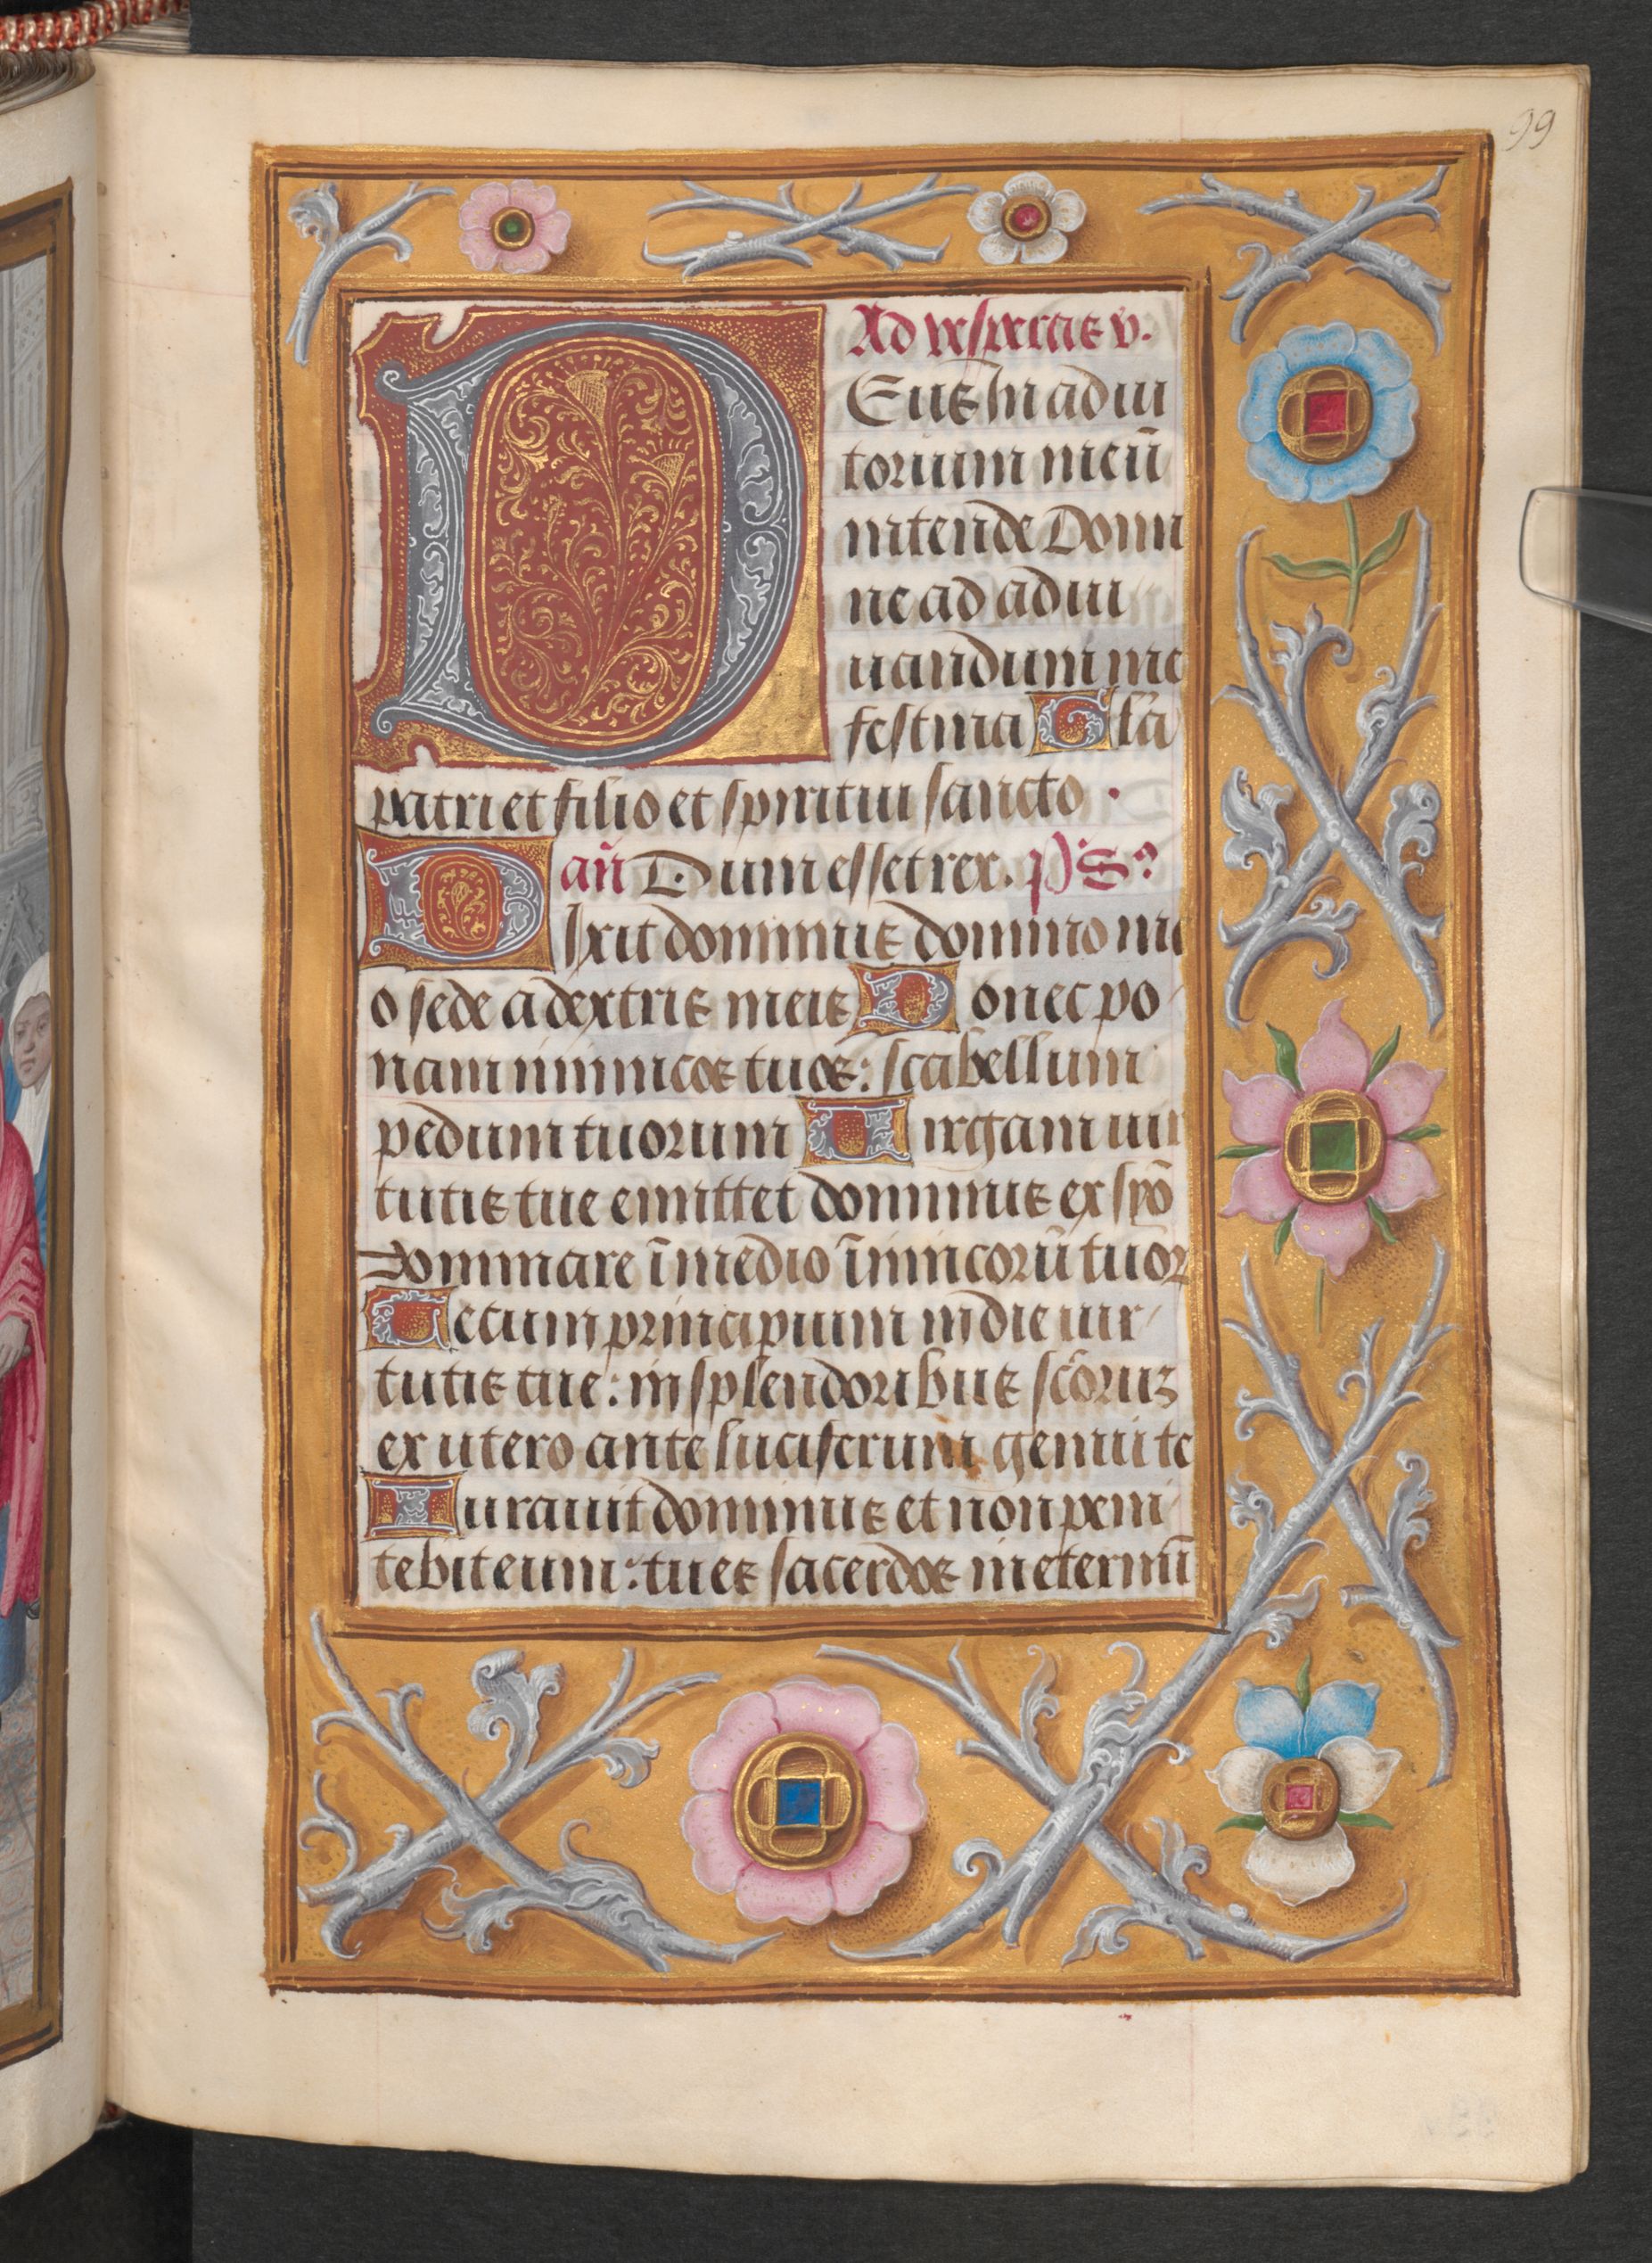 99
Ad vesperas v.
DEus in adiu
torium meū
intende Domi
ne ad adiu
uandum me
festina Glā
patri et filio et spiritui sancto .
añ Dum esset rex. ps.
Dixit dominus domino me
o sede a dextris meis Donec po
nam inimicos tuos: scabellum
pedum tuorum Uirgam uir
tutis tue emittet dominus ex syō
dominare ī medio īnimicorū tuor
Tecum principium in die uir
tutis tue: in splendoribus scōruʒ
ex utero ante luciferum genui te
Iurauit dominus et non peni
tebit eum: tu es sacerdos in eternū